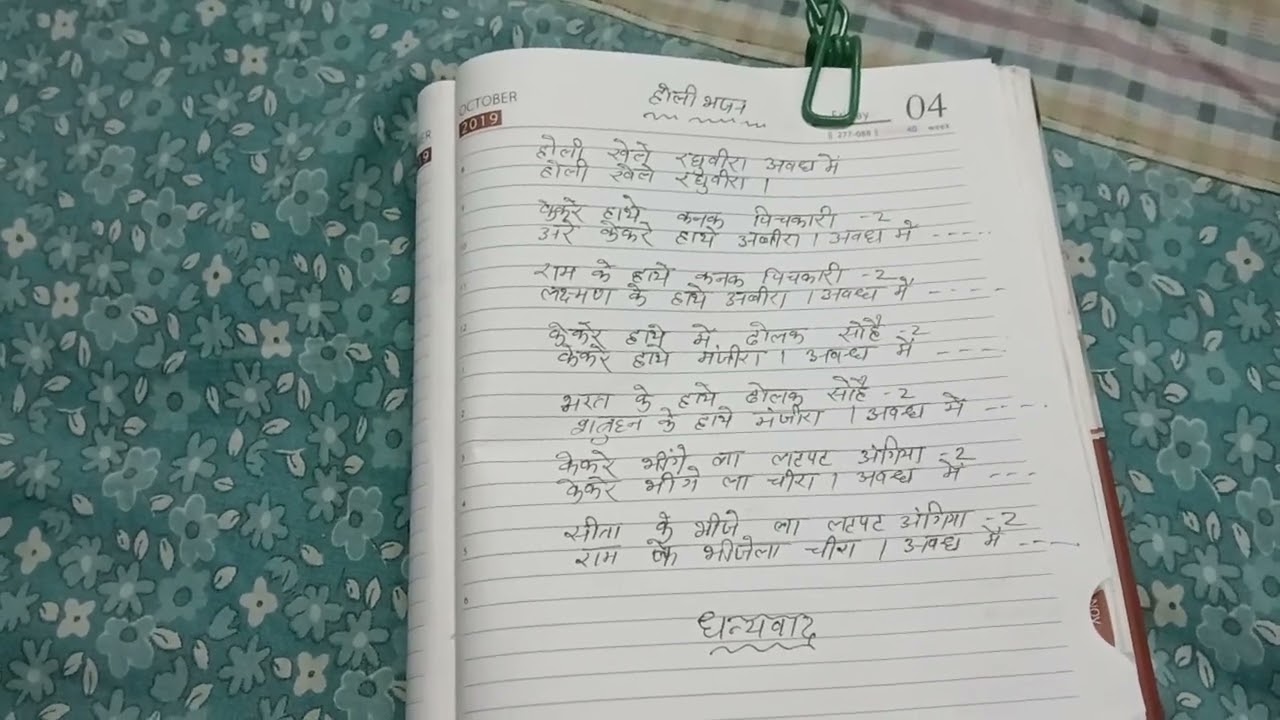 OCTOBER
2019
04
277-088
40 week
होली भजन
होली खेले रघुवीरा अवध में
होली खेले रघुवीरा ।
केकरे हाथे कनक पिचकारी -2
अरे केकरे हाथे अबीरा । अवध में -----
राम के हाथे कनक पिचकारी -2
लक्ष्मण के हाथे अबीरा । अवध में -----
केकरे हाथे में ढोलक सोहै -2
केकरे हाथे मंजीरा । अवध में ----
भरत के हाथे ढोलक सोहै -2
शत्रुहन के हाथे मंजीरा । अवध में ----
केकरे भींगे ला लटपट अंगिया -2
केकरे भींगे ला चीरा । अवध में ----
सीता के भीजे ला लटपट अंगिया -2
राम के भीजेला चीरा । अवध में ----
धन्यवाद
NOV